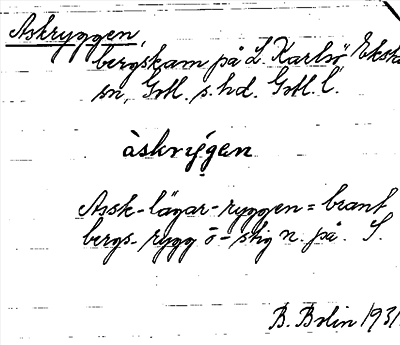 Askryggen,
bergskam på L. Karlsö, Eksta
sn, Gotl. s. hd. Gotl. l.
àskrýgen
Assk-lägar-ryggen = brant
bergs-rygg o - stig n. på. S.
B. Bolin 1931.